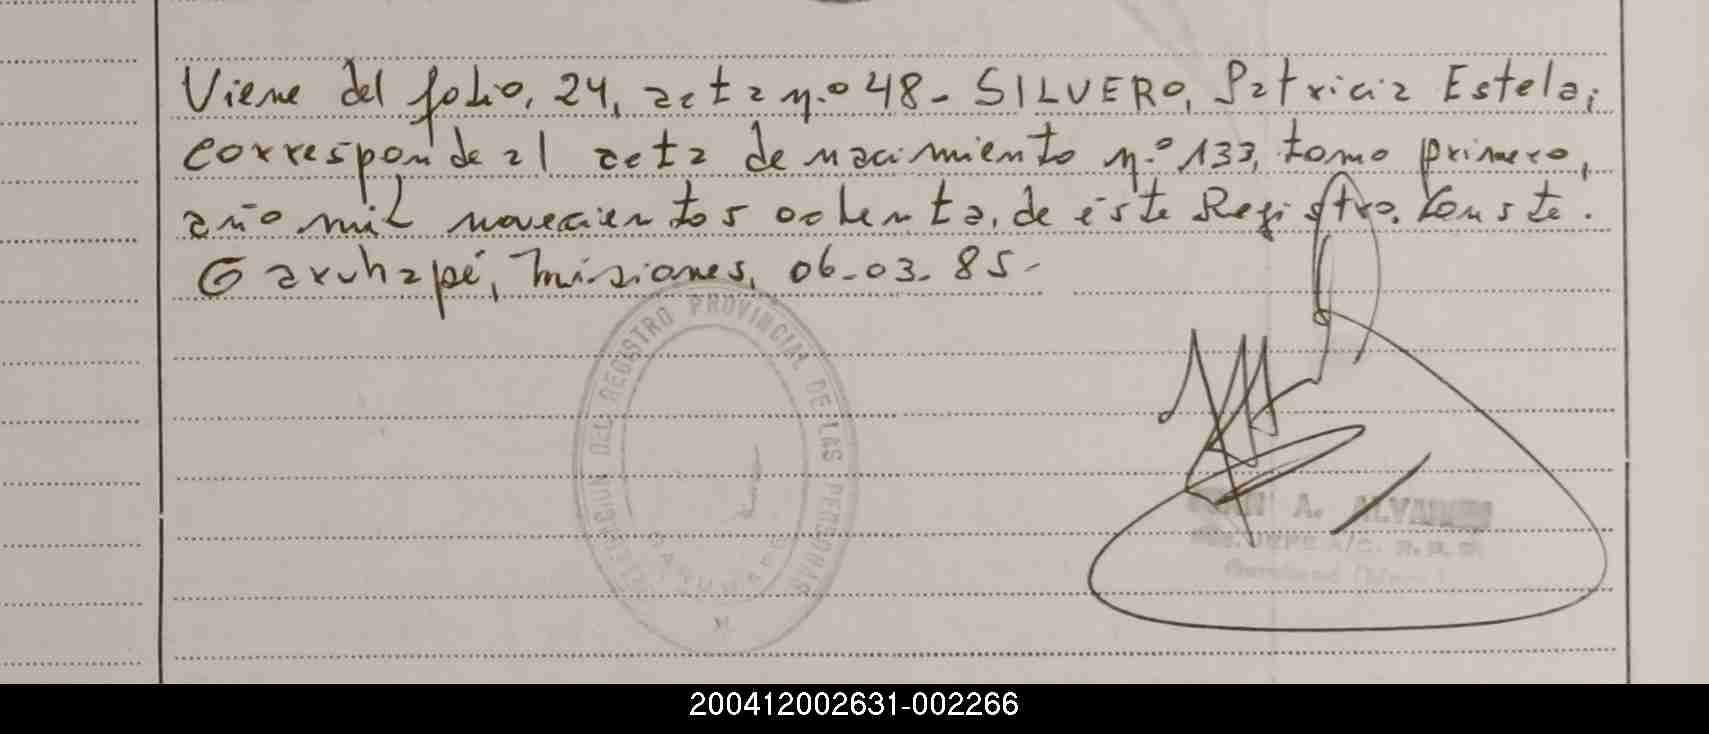 Viene del folio, 24, acta n.º 48- SILVERO, Patricia Estela;
corresponde al acta de nacimiento n.º 133, tomo primero,
año mil novecientos ochenta, de éste Registro. Conste.
Garuhapé, Misiones, 06-03-85-
DEL REGISTRO PROVINCIAL DE LAS PERSONAS
GARUHAPE
A. ALVAREZ
200412002631-002266